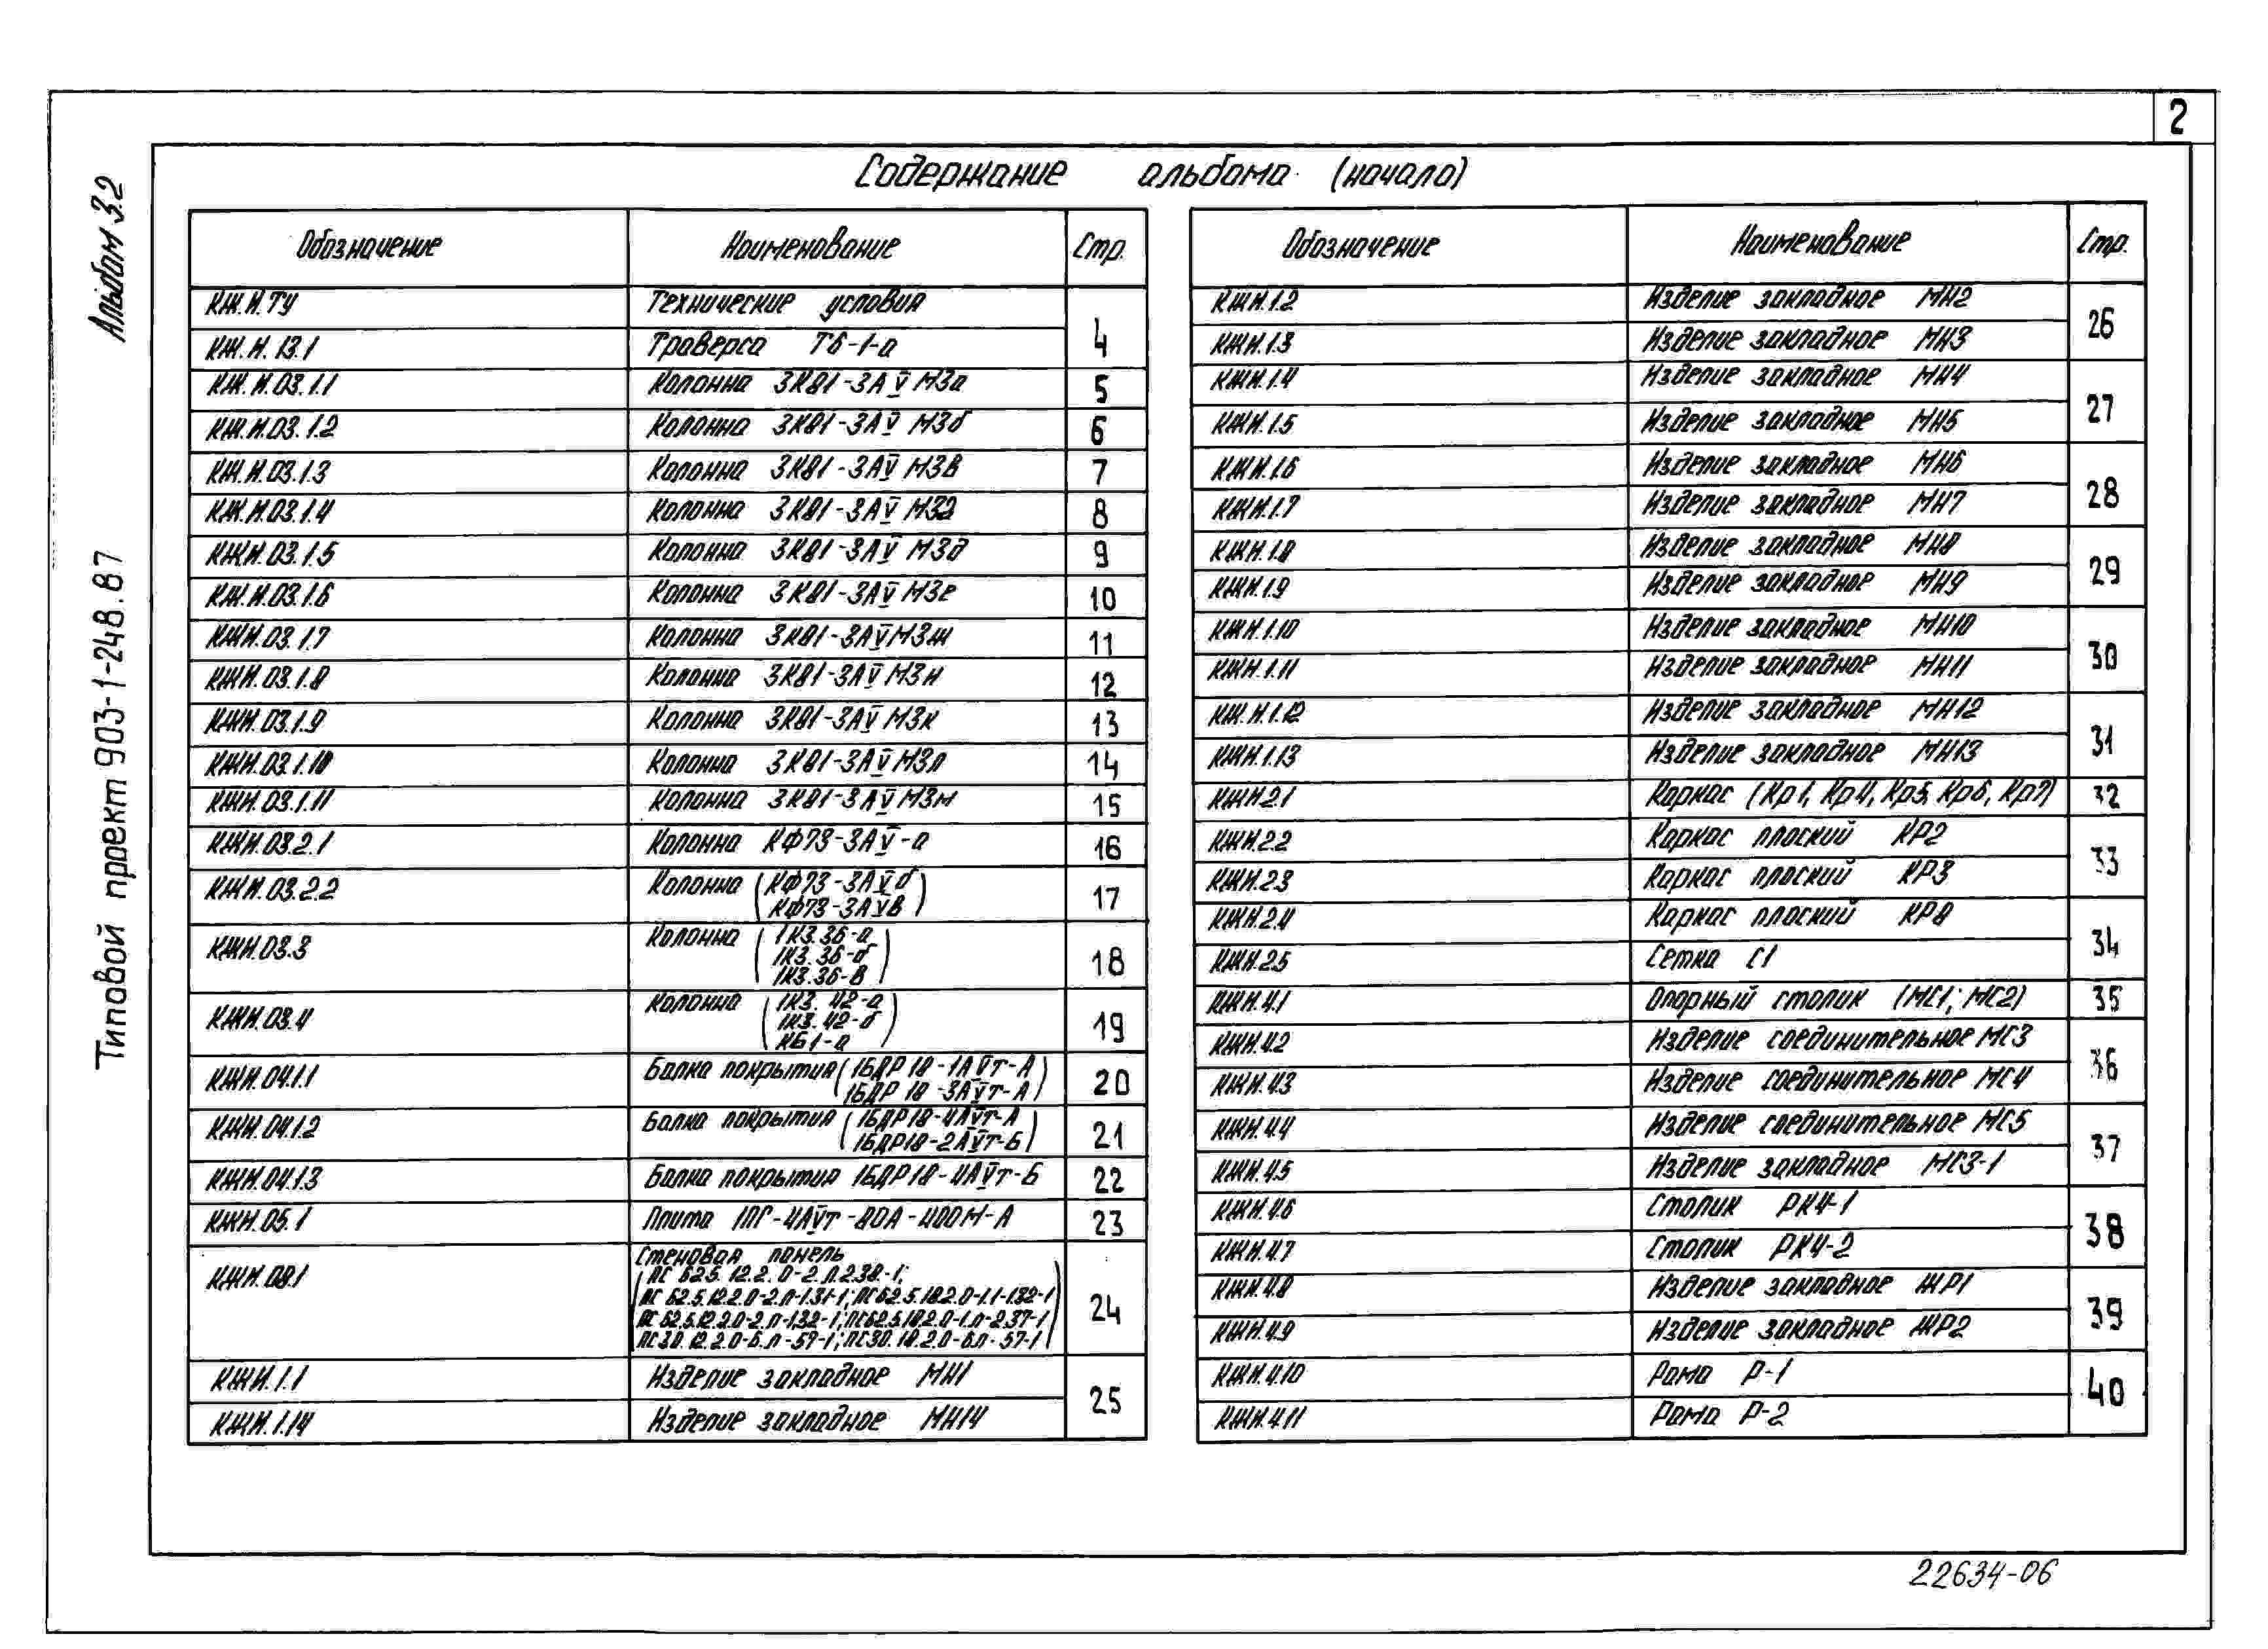 2
Содержание альбома (начало)
Альбом 3.2
Типовой проект 903-1-248.87
Обозначение Наименование Стр.
КЖ.И.ТУ Технические условия 4
КЖ.И.13.1 Траверса Т6-1-а
КЖ.И.03.1.1 Колонна 3К81-3АV М3а 5
КЖ.И.03.1.2 Колонна 3К81-3АV М3б 6
КЖ.И.03.1.3 Колонна 3К81-3АV М3в 7
КЖ.И.03.1.4 Колонна 3К81-3АV М3г 8
КЖИ.03.1.5 Колонна 3К81-3АV М3д 9
КЖ.И.03.1.6 Колонна 3К81-3АV М3е 10
КЖИ.03.1.7 Колонна 3К81-3АV М3ж 11
КЖИ.03.1.8 Колонна 3К81-3АV М3и 12
КЖИ.03.1.9 Колонна 3К81-3АV М3к 13
КЖИ.03.1.10 Колонна 3К81-3АV М3л 14
КЖИ.03.1.11 Колонна 3К81-3АV М3м 15
КЖИ.03.2.1 Колонна КФ73-3АV-а 16
КЖИ.03.2.2 Колонна (КФ73-3АVб 17
КФ73-3АVв)
КЖИ.03.3 Колонна (1К3.36-а 18
1К3.36-б
1К3.36-в)
КЖИ.03.4 Колонна (1К3.42-а 19
1К3.42-б
КБ1-а)
КЖИ.04.1.1 Балка покрытия (1БДР18-1АVт-А 20
1БДР18-3АVт-А)
КЖИ.04.1.2 Балка покрытия (1БДР18-4АVт-А 21
1БДР18-2АVт-Б)
КЖИ.04.1.3 Балка покрытия 1БДР18-4АVт-Б 22
КЖИ.05.1 Плита 1ПГ-4АVт-80А-400М-А 23
КЖИ.08.1 Стеновая панель 24
(ПС 62.5.12.2.0-2.Л.2.38-1;
ПС 62.5.12.2.0-2.Л-1.31-1; ПС62.5.18.2.0-1.1-1.32-1
ПС 62.5.12.2.0-2.Л-1.32-1; ПС62.5.18.2.0-1.Л-2.37-1
ПС30.12.2.0-6.Л-57-1; ПС30.18.2.0-6.Л-57-1)
КЖИ.1.1 Изделие закладное МН1 25
КЖИ.1.14 Изделие закладное МН14
Обозначение Наименование Стр.
КЖИ.1.2 Изделие закладное МН2 26
КЖИ.1.3 Изделие закладное МН3
КЖИ.1.4 Изделие закладное МН4 27
КЖИ.1.5 Изделие закладное МН5
КЖИ.1.6 Изделие закладное МН6 28
КЖИ.1.7 Изделие закладное МН7
КЖИ.1.8 Изделие закладное МН8 29
КЖИ.1.9 Изделие закладное МН9
КЖИ.1.10 Изделие закладное МН10 30
КЖИ.1.11 Изделие закладное МН11
КЖ.И.1.12 Изделие закладное МН12 31
КЖИ.1.13 Изделие закладное МН13
КЖИ.2.1 Каркас (Кр1, Кр4, Кр5, Кр6, Кр7) 32
КЖИ.2.2 Каркас плоский КР2 33
КЖИ.2.3 Каркас плоский КР3
КЖИ.2.4 Каркас плоский КР8 34
КЖИ.2.5 Сетка С1
КЖИ.4.1 Опорный столик (МС1; МС2) 35
КЖИ.4.2 Изделие соединительное МС3 36
КЖИ.4.3 Изделие соединительное МС4
КЖИ.4.4 Изделие соединительное МС5 37
КЖИ.4.5 Изделие закладное МС3-1
КЖИ.4.6 Столик РК4-1 38
КЖИ.4.7 Столик РК4-2
КЖИ.4.8 Изделие закладное ЖР1 39
КЖИ.4.9 Изделие закладное ЖР2
КЖИ.4.10 Рама Р-1 40
КЖИ.4.11 Рама Р-2
22634-06